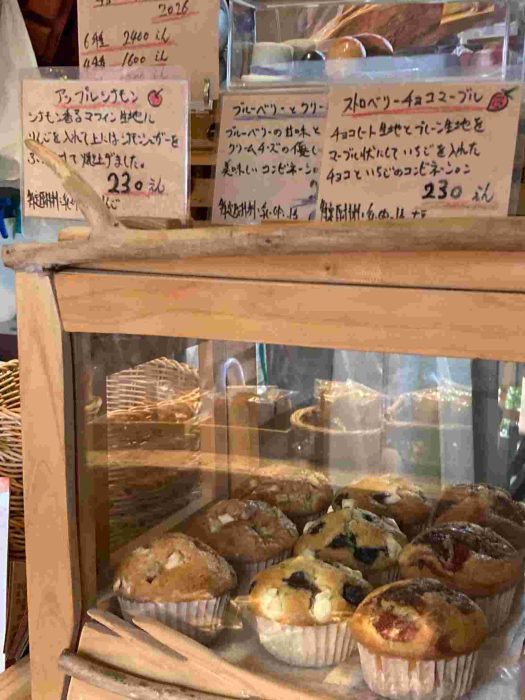 2026
6種 2400えん
4種 1600えん
アップルシナモン
シナモン香るマフィン生地に
りんごを入れて上にはシナモンシュガーを
焼上げました。
230えん
ブルーベリーとクリー
ブルーベリーの甘味と
クリームチーズの優し
美味しいコンビネーション
の
ストロベリーチョコマーブル
チョコレート生地とプレーン生地を
マーブル状にしていちごを入れた
チョコといちごのコンビネーション
230えん